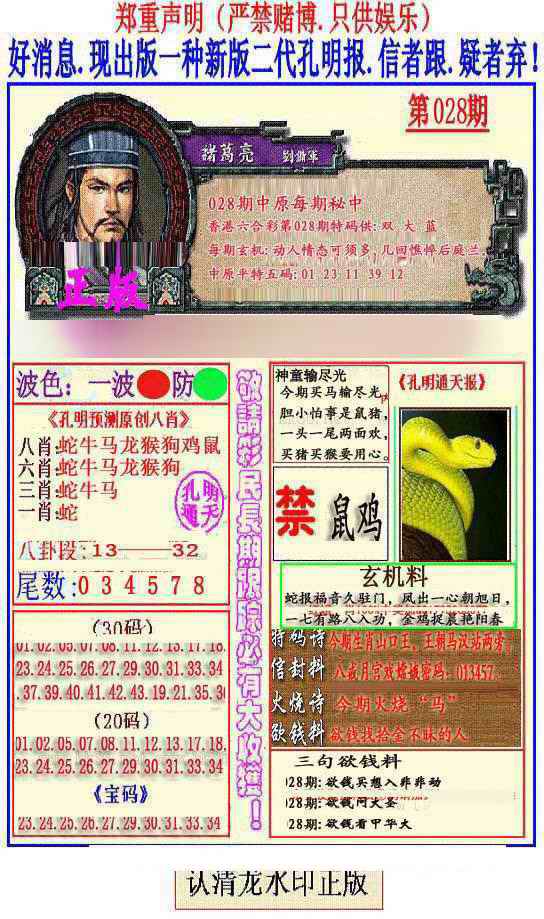 郑重声明（严禁赌博.只供娱乐）
好消息.现出版一种新版二代孔明报.信者跟.疑者弃！
第028期
諸葛亮 劉備軍
028期中原每期秘中
香港六合彩第028期特码供: 双 大 蓝
每期玄机: 动人情态可须多, 几回憔悴后庭兰,
中原平特五码: 01 23 11 39 12
正版
波色: 一波 防
《孔明预测原创八肖》
八肖:蛇牛马龙猴狗鸡鼠
六肖:蛇牛马龙猴狗
三肖:蛇牛马
一肖:蛇
孔明
通天
八卦段:13——32
尾数:0 3 4 5 7 8
(30码)
01.02.05.07.08.11.12.13.17.18.
23.24.25.26.27.29.30.31.33.34
.37.39.40.41.42.43.19.21.35.36
(20码)
01.02.05.07.08.11.12.13.17.18.
23.24.25.26.27.29.30.31.33.34
《宝码》
23.24.25.26.27.29.30.31.33.34
敬請彩民長期跟踪必有大收獲！
神童输尽光
今期买马输尽光,
胆小怕事是鼠猪,
一头一尾两面欢,
买猪买猴要用心。
《孔明通天报》
禁 鼠鸡
玄机料
蛇报福音久驻门, 凤出一心朝旭日,
一七有路八入功, 金鸡捉晨艳阳春
特码诗 今期生肖山口王, 王朝马汉站两旁,
信封料 八戒月宫戏嫦娥密码: 013457.
火烧诗 今期火烧“马”
欲钱料 欲钱找拾金不昧的人
三句欲钱料
028期: 欲钱买想入非非动
028期: 欲钱问大圣
028期: 欲钱看甲华火
认清龙水印正版